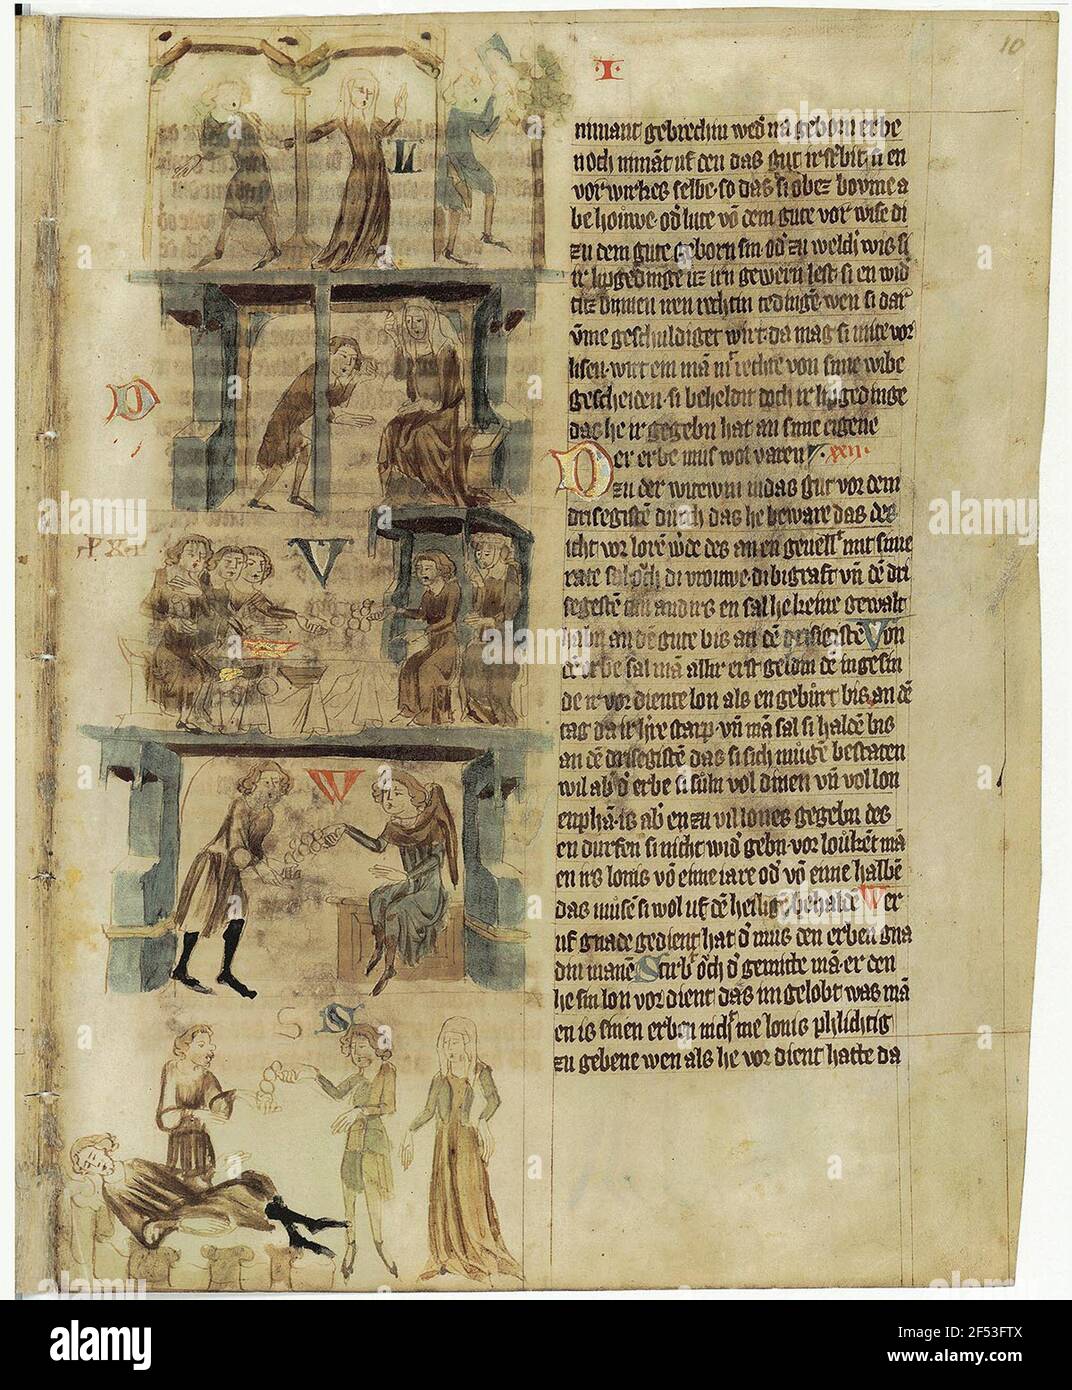 10
·I·
nimant gebrechin wed' nā geborn erbe
noch nimāt uf den das gut irsterbit· si en
vor wirkes selbe· so das si obez boume a
be houwe· od' lute vō dem gute vor wise di
zu dem gute geborn sin od' zu welch' wis si
ir lipgedinge uz irn gewern lest· si en wid'
tu binnen iren rechtin tedinge· wen si dar
ūme geschuldiget wirt· da mag si mite vor
lisen· wirt ein mā mit rechte von sime wibe
gescheiden· si beheldit doch ir lipgedinge
das he ir gegebn hat an sime eigene
Der erbe mus wol varen ·xxii·
zu der witewin in das gut vor dem
drisegistē durch das he beware das des
icht vor lorē w'de des an en gevelle mit sime
rate sal och di vrouwe· bigraft vn̄ dē dri
segestē anders en sal he keine gewalt
habn an dē gute bis an dē drisigistē Von
dē erbe sal mā allir erst geldin dē ingesin
de ir vor diente lon als en gebūrt bis an dē
tag da ir h're starp· vn̄ mā sal si haldē bis
an dē drisegistē das si sich mūgē bestaten
wil ab' d' erbe si suln vol dinen vn̄ vol lon
enphā· is ab' en zu vil lones gegebn des
en durfen si nicht wid' gebn· vor loukēt mā
en irs lonis vō eime iare od' vō eime halbē
das musē si wol uf dē heilig' behaldē Wer
uf gnade gedient hat d' mus den erben gna
din manē Stirb' och d' gemitte mā· er den
he sin lon vor dient das im gelobt was mā
en is sinen erben nicht me lonis phlichtig
zu gebene wen als he vor dient hatte da
D
V
W
S
S
alamy
Image ID: 2F53FTX
www.alamy.com